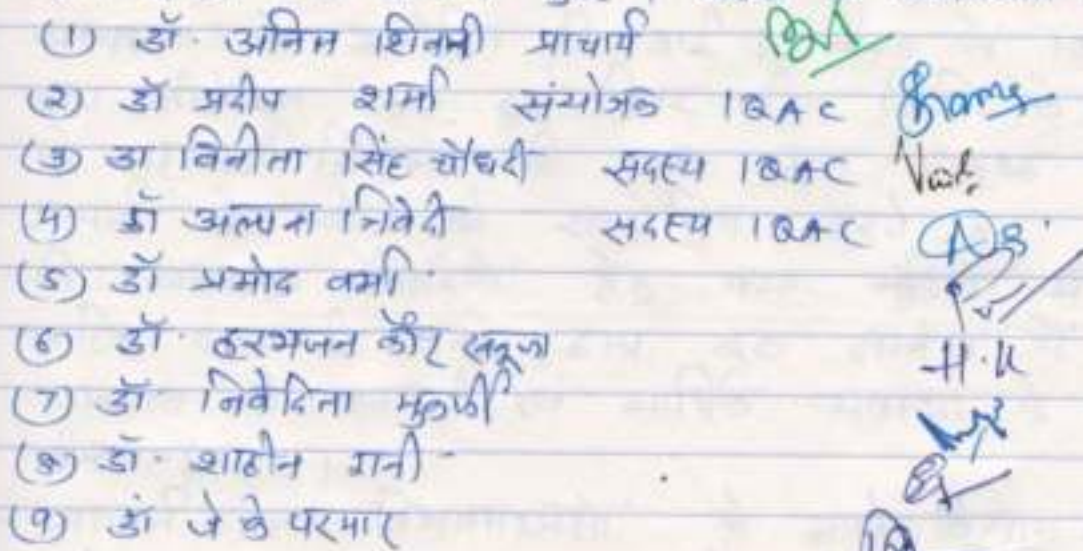 (1) डॉ. अनिल शिवानी प्राचार्य
(2) डॉ प्रदीप शर्मा संयोजक IQAC
(3) डा विनीता सिंह चौधरी सदस्य IQAC
(4) डॉ अल्पना त्रिवेदी सदस्य IQAC
(5) डॉ प्रमोद वर्मा
(6) डॉ. हरभजन कौर H.K
(7) डॉ निवेदिता मुकर्जी
(8) डॉ. शाहीन
(9) डॉ जे के परमार